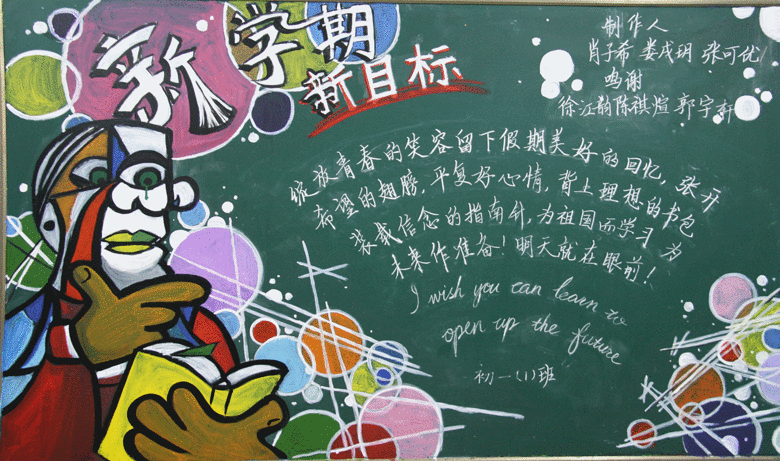 新学期
新目标
制作人
肖子希 娄成玥 张可优
鸣谢
徐江韵 陈祺煊 郭宇轩
绽放青春的笑容留下假期美好的回忆，张开
希望的翅膀，平复好心情，背上理想的书包
装载信念的指南针，为祖国而学习 为
未来作准备！明天就在眼前！
I wish you can learn to
open up the future
初一(1)班